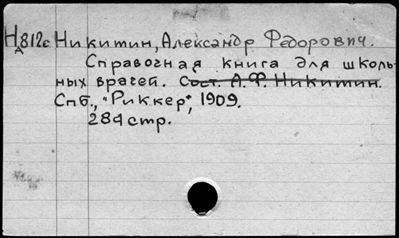 НА812с Никитин, Александр Федорович.
Справочная книга для школь-
ных врачей. Сост. А.Ф. Никитин.
Спб., "Риккер", 1909.
284 стр.